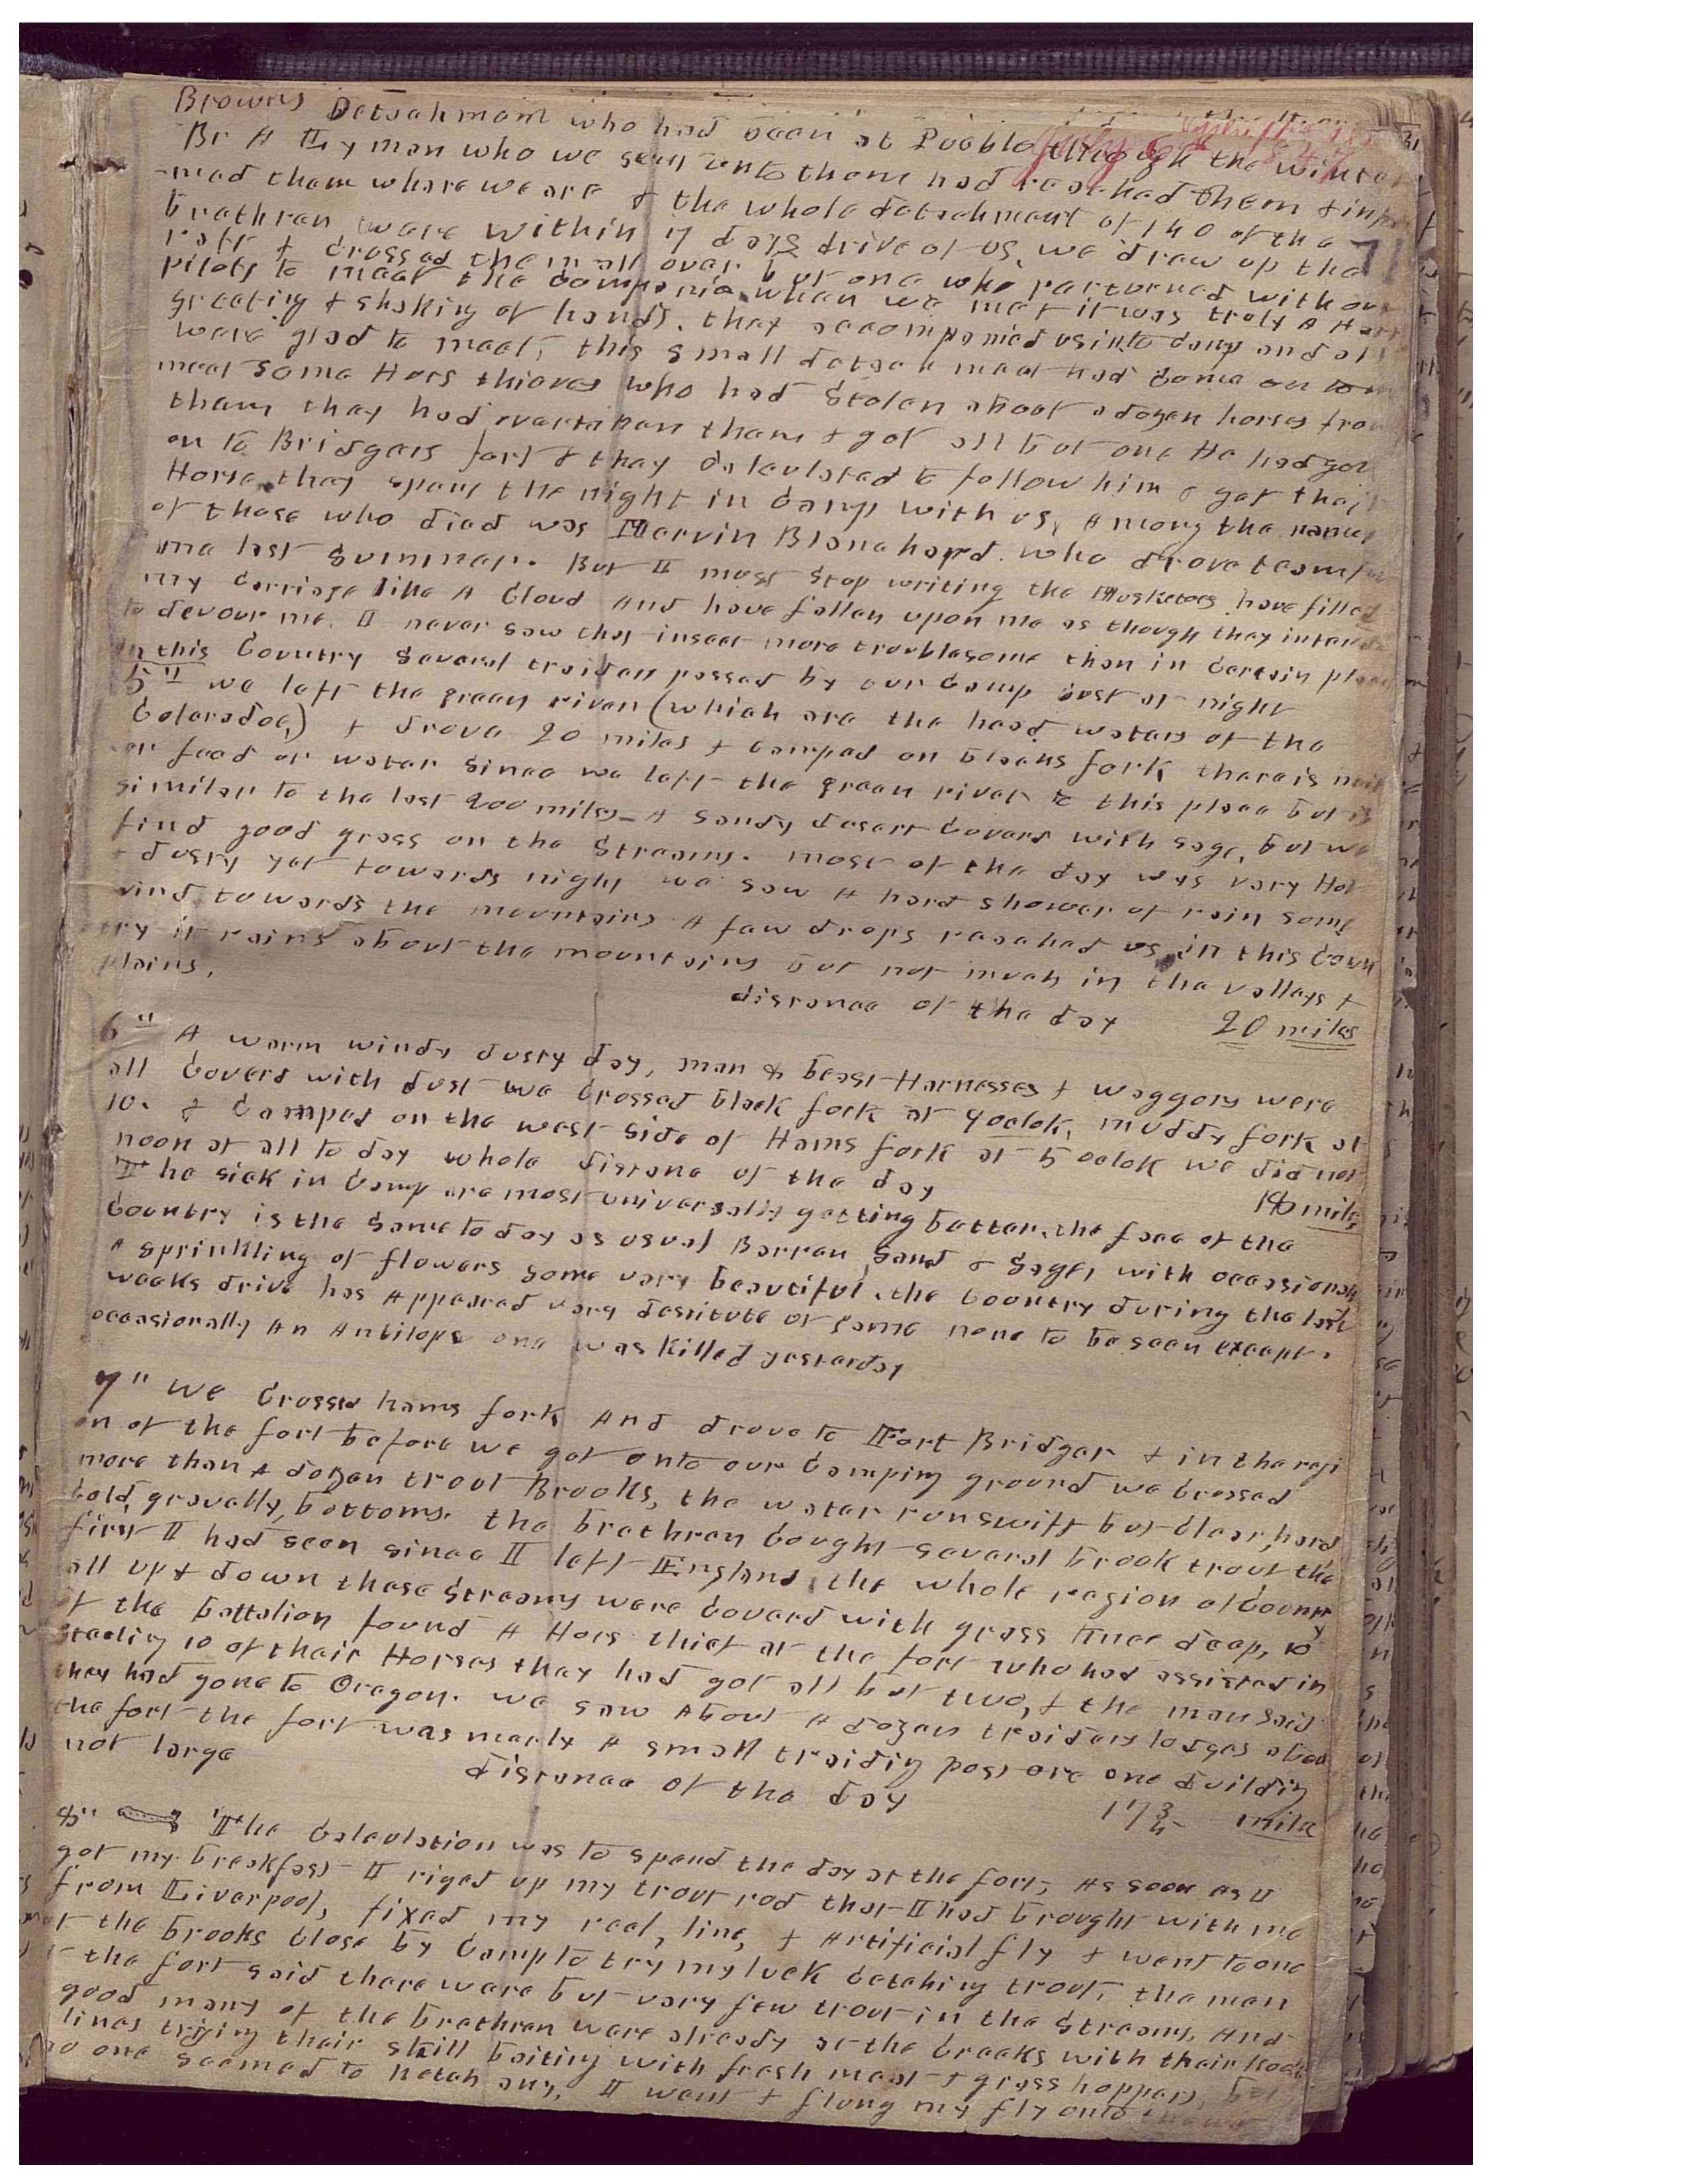 Browns Detachment who had been at Pueblo through the winter
Br A Ly man who we sent unto them had reached them & infor
-med them where we are & the whole detachment of 140 of the
brethren were within 7 days drive of us, we drew up the
raft & crossed them all over but one who returned with our
pilots to meet the companie. when we met it was truly A Harty
greeting & shaking of hands. they accompanied us into camp and all
were glad to meet, this small detachment had come on to
meet some Hors thieves who had stolen about a dozen horses from
them they had overtaken them & got all but one He had gon
on to Bridgers fort & they calculated to follow him & get their
Horse. they spent the night in camp with us, Among the names
of those who died was Mervin Blanchard. who drove team for
me last summer. But I must stop writing the Musketoes have filled
my carriage like A Cloud And have fallen upon me as though they intend
to devour me. I never saw that insect more troublesome than in certain places
in this Country Several traiders passed by our camp just at night
5" we left the green river (which are the head waters of the
Colaradoe,) & drove 20 miles & camped on blacks fork there is neit
-er feed or water since we left the green river to this place but is
similar to the last 200 miles - A sandy desert Coverd with sage, but we
find good grass on the streams. most of the day was very Hot
& dusty yet towards night we saw A hard shower of rain some
wind towards the mountains A few drops reached us, in this Coun
try it rains about the mountains but not much in the valleys &
plains,
distance of the day 20 miles
6" A warm windy dusty day, man & beast Harnesses & waggons were
all Coverd with dust we Crossed black fork at 9 oclok, muddy fork at
10. & Camped on the west side of Hams fork at 5 oclok we did not
noon at all to day whole distanc of the day 18 miles
The sick in Camp are most universally getting better, the face of the
Country is the same to day as usual Barren, Sand & Sage, with occasionaly
a sprinkling of flowers some very beautiful, the Country during the last
weeks drive has Appeared very destitute of game none to be seen except.
occasionally An Antilope one was killed yesterday
7" We Crossed hams fork And drove to Fort Bridger & in the regi
on of the fort before we got onto our Camping ground we Crossed
more than A dozen trout Brooks, the water run swift but clear, hard
cold, gravelly, bottoms. the brethren Cought several brook trout the
first I had seen since I left England, the whole region of Country
all up & down these streams were Coverd with grass knee deep, 10
of the battalion found A Hors thief at the fort who had assisted in
stealing 10 of their Horses they had got all but two, & the man said
they had gone to Oregon. We saw About A dozen traiders lodges about
the fort the fort was mearly A small traiding post are one building
not large
distance of the day 17 3/4 mile
8" The Calculation was to spend the day at the fort, As soon as I
got my breakfast I riged up my trout rod that I had brought with me
from Liverpool, fixed my reel, line, & Artificial fly & went to one
of the brooks Close by Camp to try my luck catching trout, the man
at the fort said there were but very few trout in the streams, And
good many of the brethren were already at the creeks with their hooks
lines trying their skill baiting with fresh meat & grass hoppers, but
no one seemed to ketch any, I went & flung my fly onto